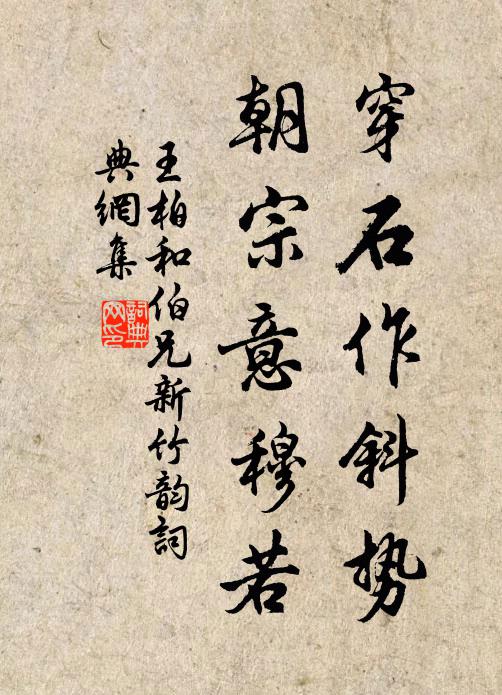 穿石作斜势
朝宗意穆若
王柏和伯兄新竹韵詞
典網集
詞典网印